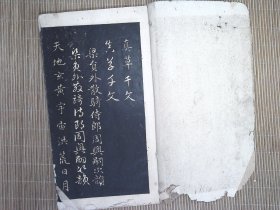 真草千文
真草千文
梁員外散騎侍郎周興嗣次韻
梁員外散騎侍郎周興嗣次韻
天地玄黄宇宙洪荒日月